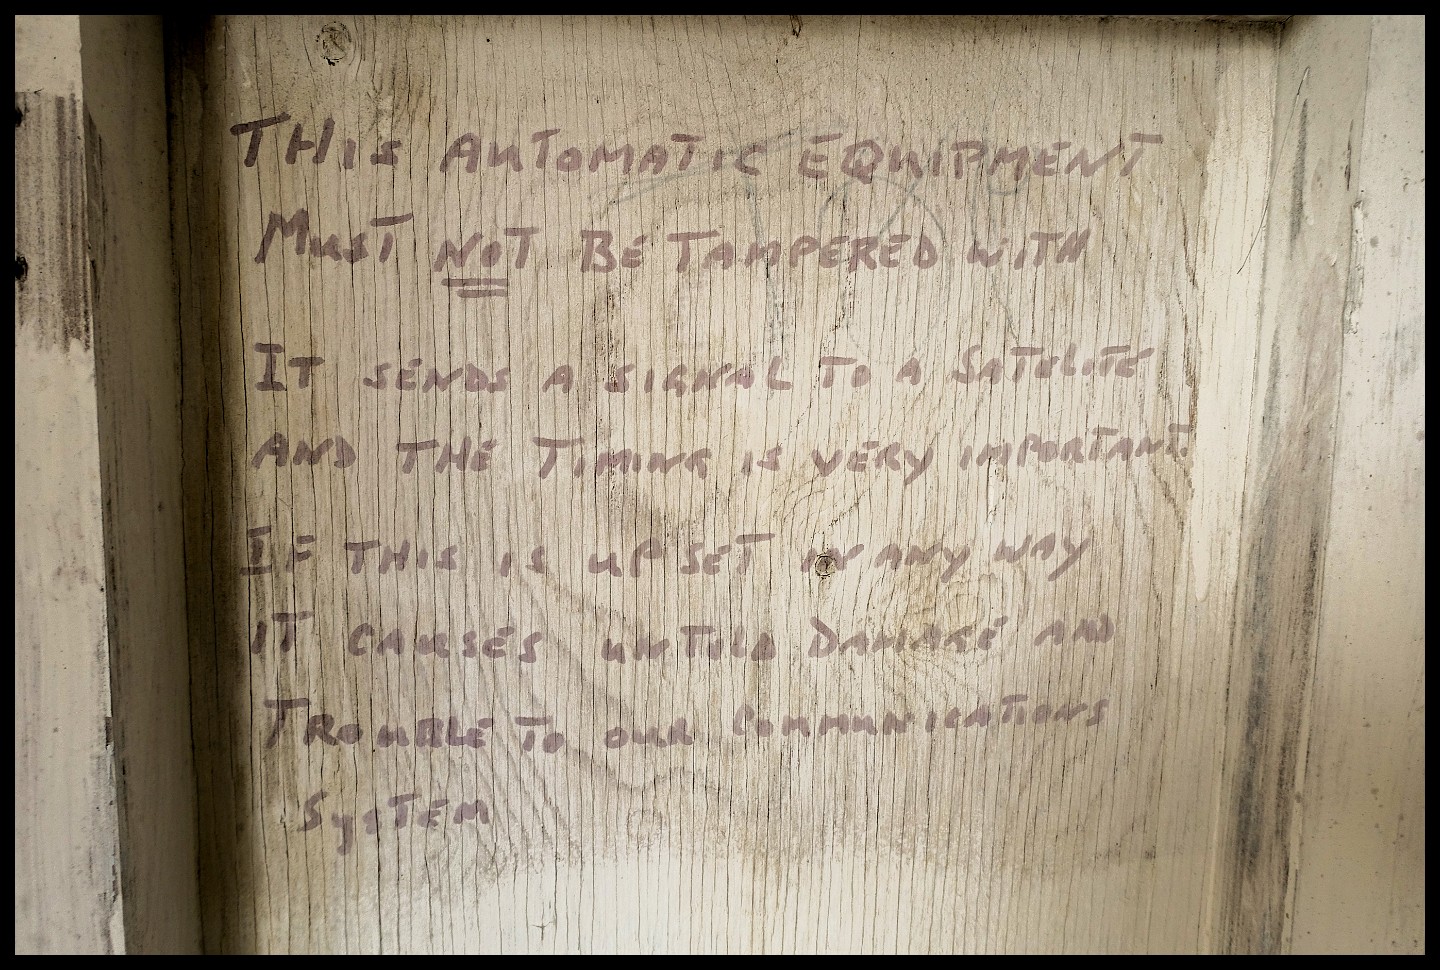 THIS AUTOMATIC EQUIPMENT
MUST NOT BE TAMPERED WITH
IT SENDS A SIGNAL TO A SATELITE
AND THE TIMING IS VERY IMPORTANT.
IF THIS IS UPSET IN ANY WAY
IT CAUSES UNTOLD DAMAGE AND
TROUBLE TO OUR COMMUNICATIONS
SYSTEM